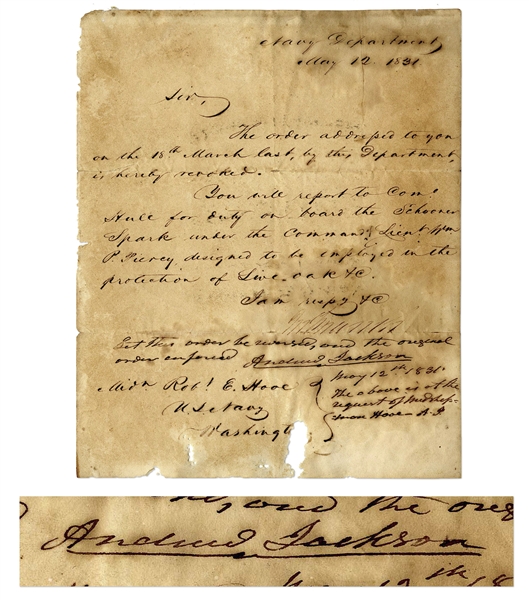 Navy Department
May 12. 1831
Sir,
The order addressed to you
on the 18th March last, by this Department,
is hereby revoked.
You will report to Com.
Hull for duty on board the Schooner
Spark under the Command Lieut Wm
P. Piercy designed to be employed in the
protection of Live-oak &c.
I am respy &c
Let this order be reversed, and the original
order enforced Andrew Jackson
May 12th 1831.
The above is at the
request of Midship-
man Hooe - A. J
Midn Robt. E. Hooe
U S Navy
Washington
and the orig
Andrew Jackson